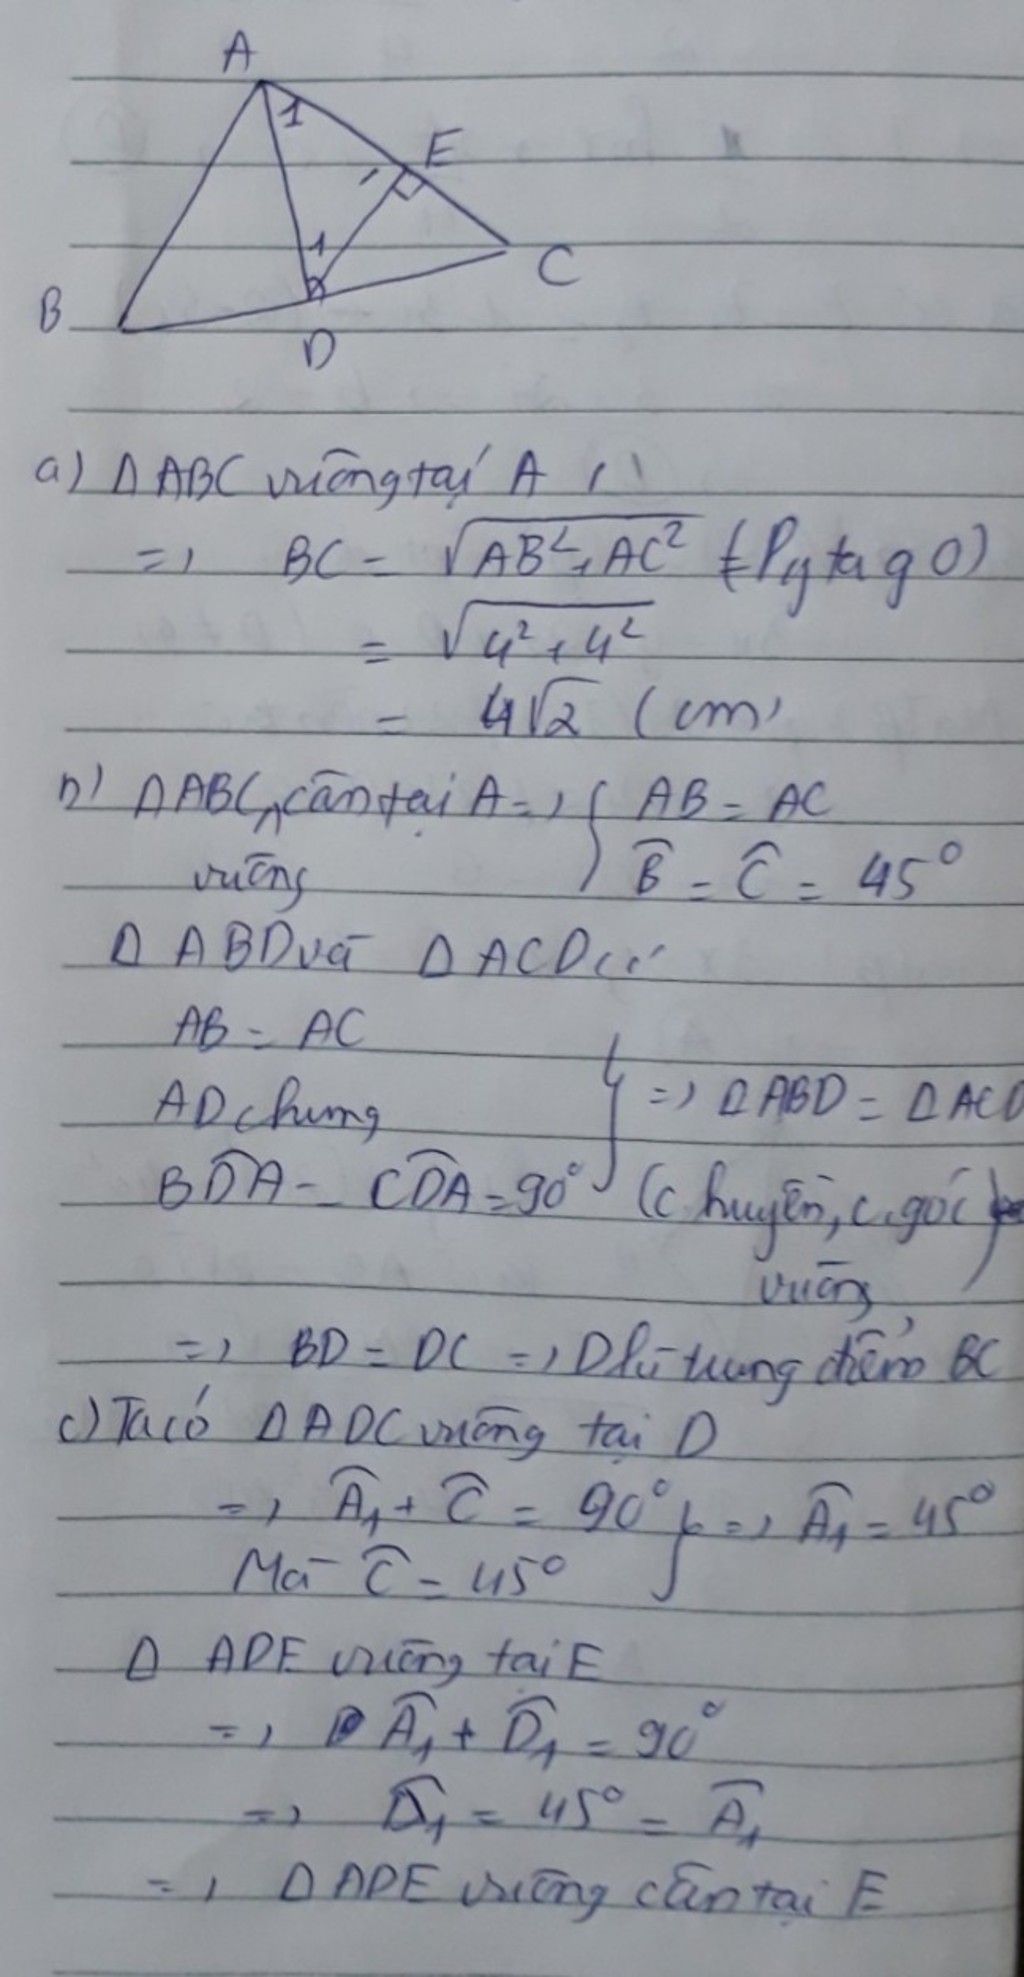 A
1
E
1
C
B
D
a) Δ ABC vuông tại A có
=> BC = √AB² + AC² (Pytago)
= √4² + 4²
= 4√2 (cm)
b) Δ ABC cân tại A => { AB = AC
vuông B̂ = Ĉ = 45°
Δ ABD và Δ ACD có
AB = AC
AD chung } => Δ ABD = Δ ACD
BD̂A = CD̂A = 90° (c.huyền, c.góc
vuông)
=> BD = DC => D là trung điểm BC
c) Ta có Δ ADC vuông tại D
=> Â₁ + Ĉ = 90° } => Â₁ = 45°
Mà Ĉ = 45°
Δ ADE vuông tại E
=> Â₁ + D̂₁ = 90°
=> D̂₁ = 45° = Â₁
=> Δ ADE vuông cân tại E